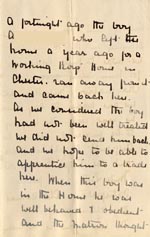 A fortnight ago the boy
A who left the
home a year ago for a
Working Boys' Home in
Chester, ran away from it
and came back here.
As we considered the boy
had not been well treated
we did not send him back
and we hope to be able to
apprentice him to a trade
here. When this boy was
in the Home he was
well behaved & obedient
and the matron thought